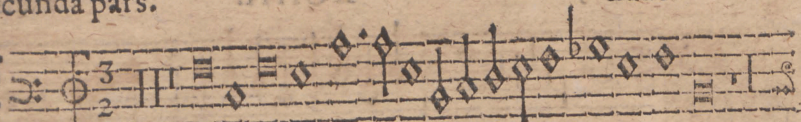 cunda pars.
3
2